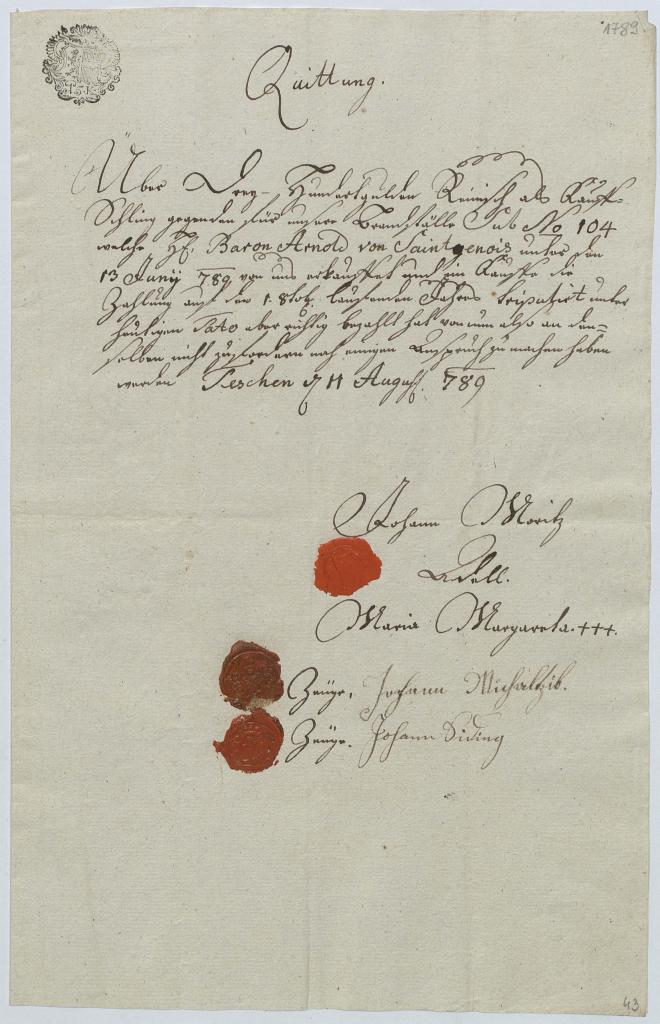 1789.
15 K
Quittung.
Über Drey Hundert gulden Reinisch als Kauff-
Schling gegenden für unsere Brandställe Sub No 104
welche H. Baron Arnold von Saintgenois unter den
13 Junij 789 von uns erkauffet und im Kauffe die
Zahlung auf den 1. laufenden Jahres stipulirt unter
heutigen Dato aber richtig bezahlt hat von nun also an den=
selben nicht zu fordern noch einigen Anspruch zu machen haben
werden Teschen d 11 August. 789
Johann Moritz
Adell.
Maria Margareta. +++.
Zeüge. Johann
Zeüge. Johann Siding
43